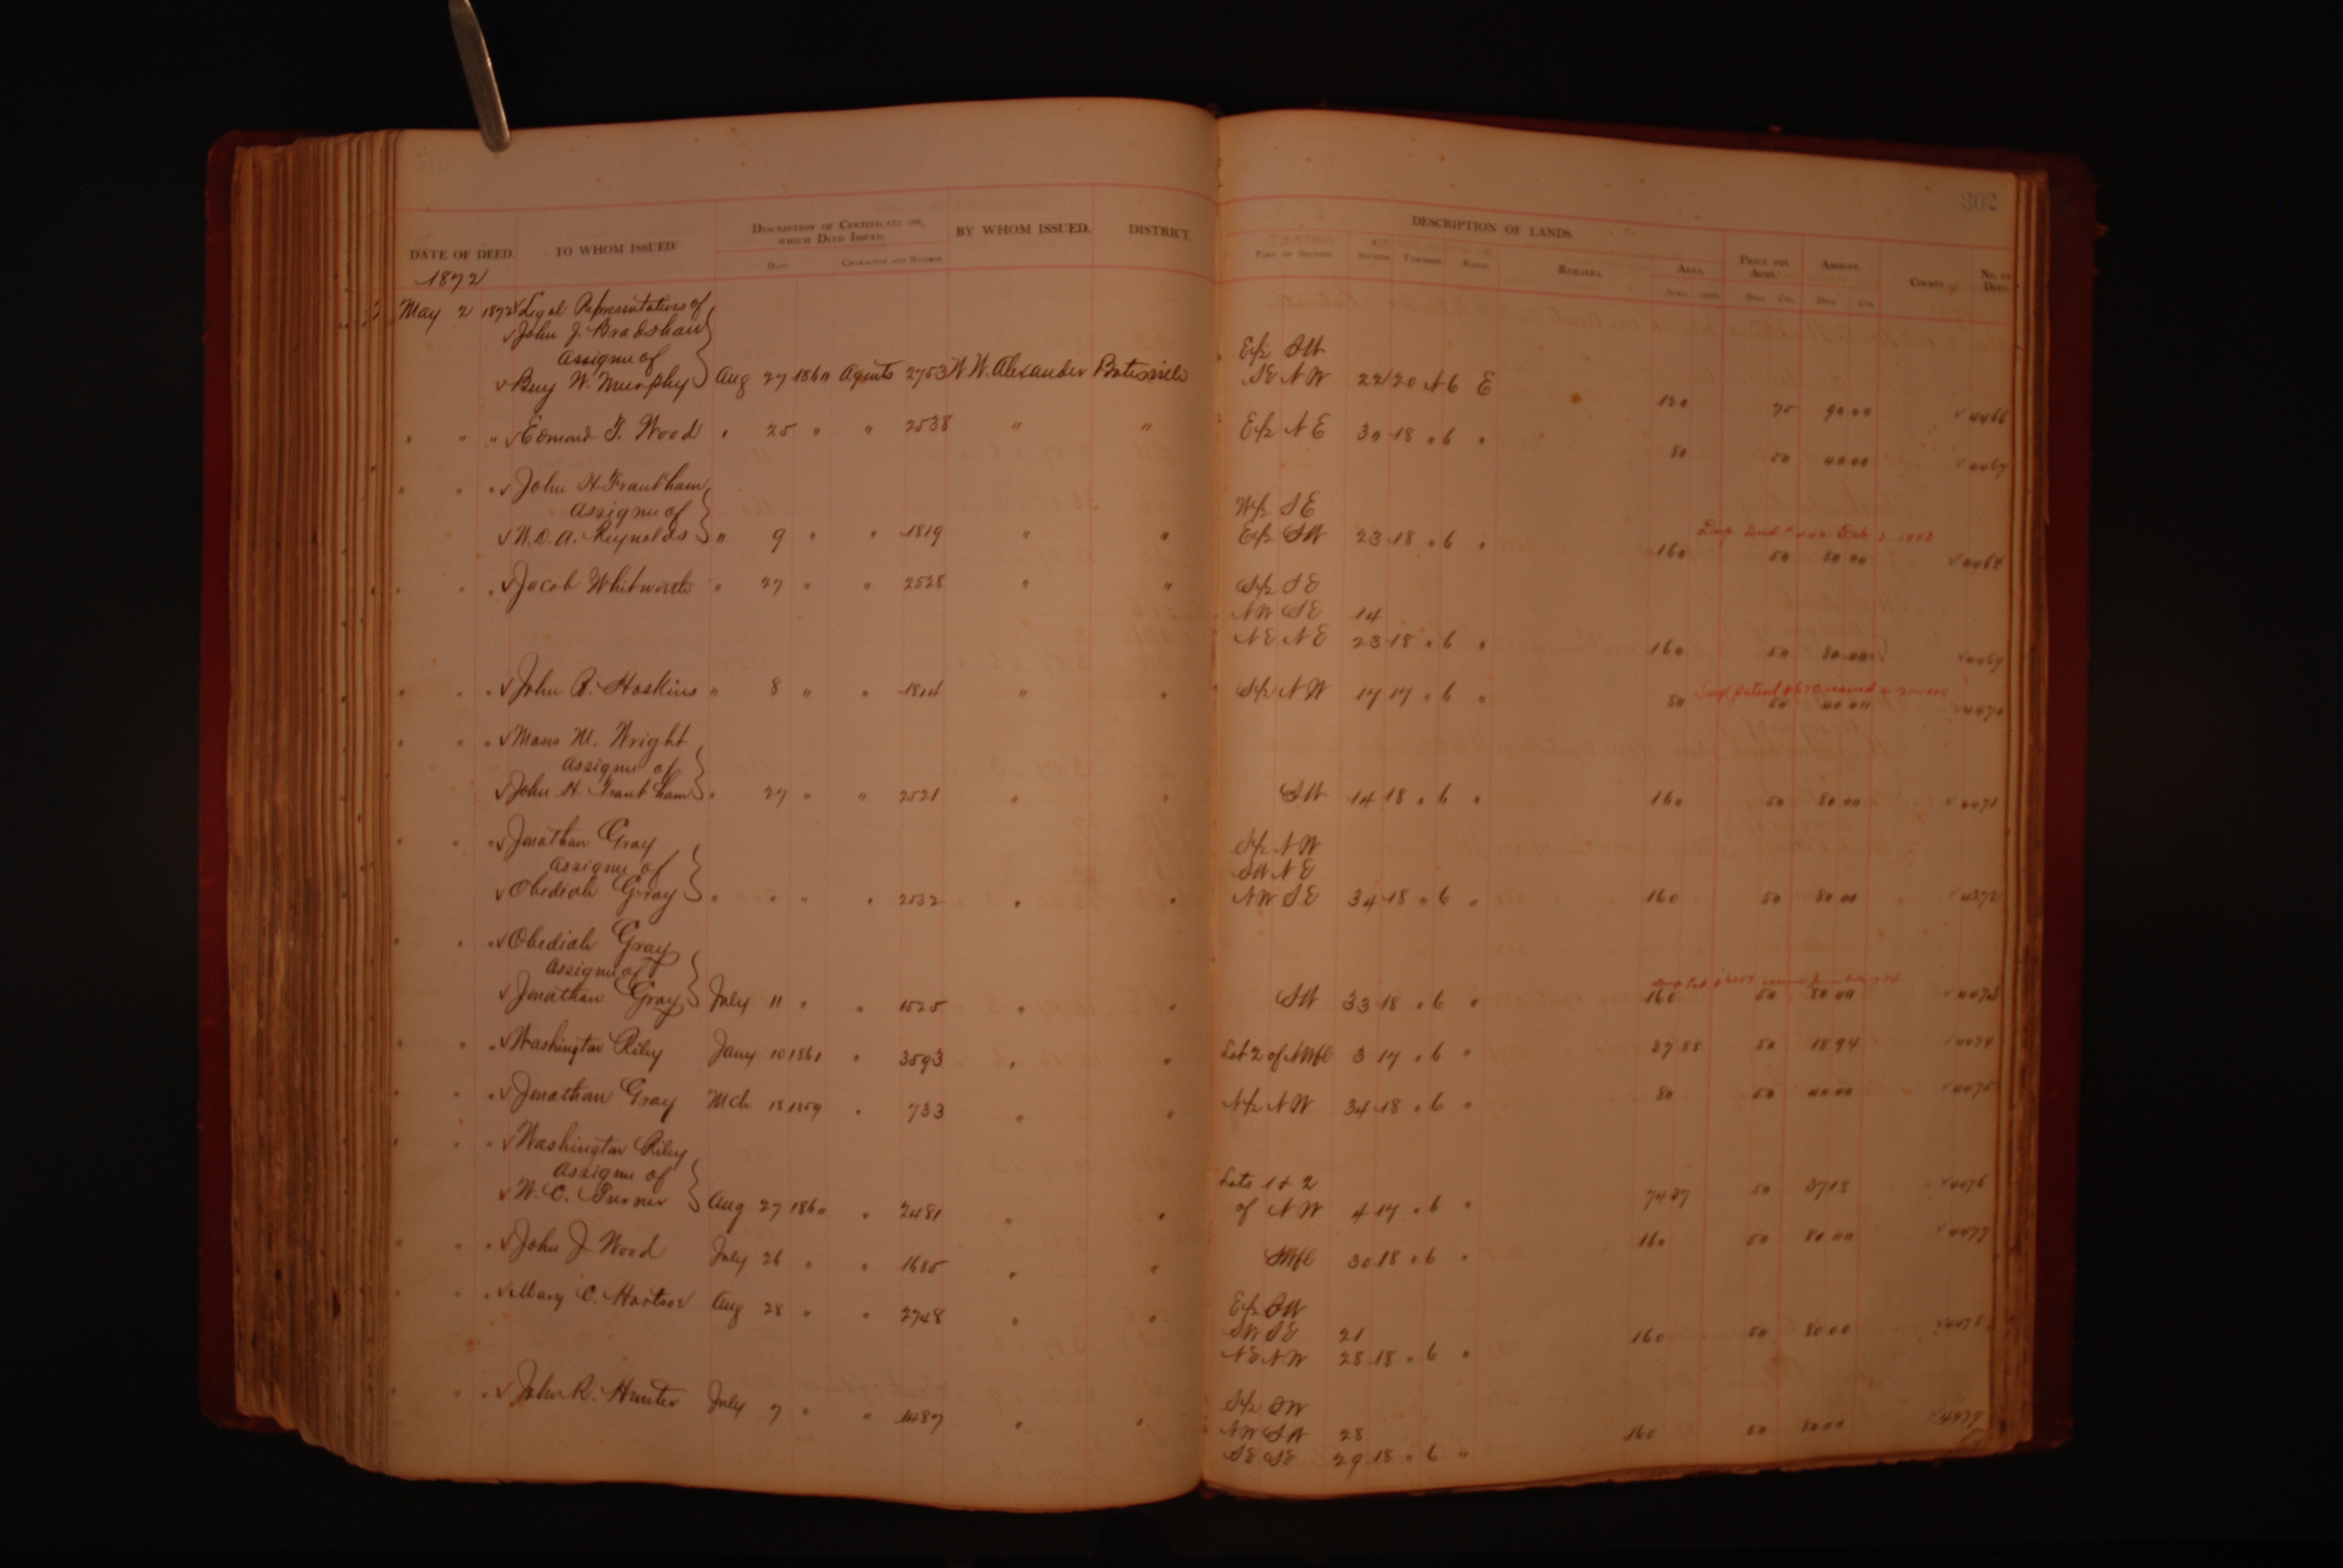 302
DESCRIPTION OF LANDS.
DATE OF DEED. TO WHOM ISSUED. DESCRIPTION OF CERTIFICATE ON WHICH DEED ISSUED. BY WHOM ISSUED. DISTRICT. PART OF SECTION. SECTION. TOWNSHIP. RANGE. REMARKS. AREA. PRICE PER ACRE. AMOUNT. COUNTY. NO. OF DEED.
DATE CHARACTER AND NUMBER. DOLS. CTS. DOLS. CTS.
1872
May 2 1872 Legal Representatives of
John J. Bradshaw
Assignee of E/2 SW
Benj W. Murphy Aug 27 1860 Agents 2753 W. W. Alexander Batesville SE NW 22 20 N 6 E 120 75 90 00 4466
" " " Edmond T. Wood " 25 " " 2538 " " E/2 NE 30 18 " 6 " 80 50 40 00 4467
" " " John H. Trantham W/2 SE
Assignee of
W. D. A. Reynolds " 9 " " 1819 " " E/2 SW 23 18 " 6 " 160 50 80 00 4468
" " " Jacob Whitworth " 27 " " 2528 " " S/2 SE
NW SE 14
NE NE 23 18 " 6 " 160 50 80 00 4469
" " " John R. Hoskins " 8 " " 1814 " " S/2 NW 17 17 " 6 " 80 50 40 00 4470
" " " M. Wright
Assignee of
John H. Trantham " 27 " " 2521 " " SW 14 18 " 6 " 160 50 80 00 4471
" " " Jonathan Gray S/2 NW
Assignee of SW NE
Obediah Gray " " " " 2532 " " NW SE 34 18 " 6 " 160 50 80 00 4472
" " " Obediah Gray
Assignee of
Jonathan Gray July 11 " " 1525 " " SW 33 18 " 6 " 160 50 80 00 4473
" " " Washington Riley Jany 10 1861 " 3593 " " Lot 2 of NWfl 3 17 " 6 " 37 88 50 18 94 4474
" " " Jonathan Gray Mch 18 1859 " 733 " " N/2 NW 34 18 " 6 " 80 50 40 00 4475
" " " Washington Riley
Assignee of Lots 1 & 2
W. C. Turner Aug 27 1860 " 2481 " " of NW 4 17 " 6 " 74 37 50 37 18 4476
" " " John J. Wood July 26 " " 1685 " " SWfl 30 18 " 6 " 160 50 80 00 4477
" " " Mary C. Hartsoe Aug 28 " " 2748 " " E/2 SW
SW SE 21
NE NW 28 18 " 6 " 160 50 80 00 4478
" " " John R. Hunter July 7 " " 1487 " " S/2 SW
NW SW 28
SE SE 29 18 " 6 " 160 50 80 00 4479